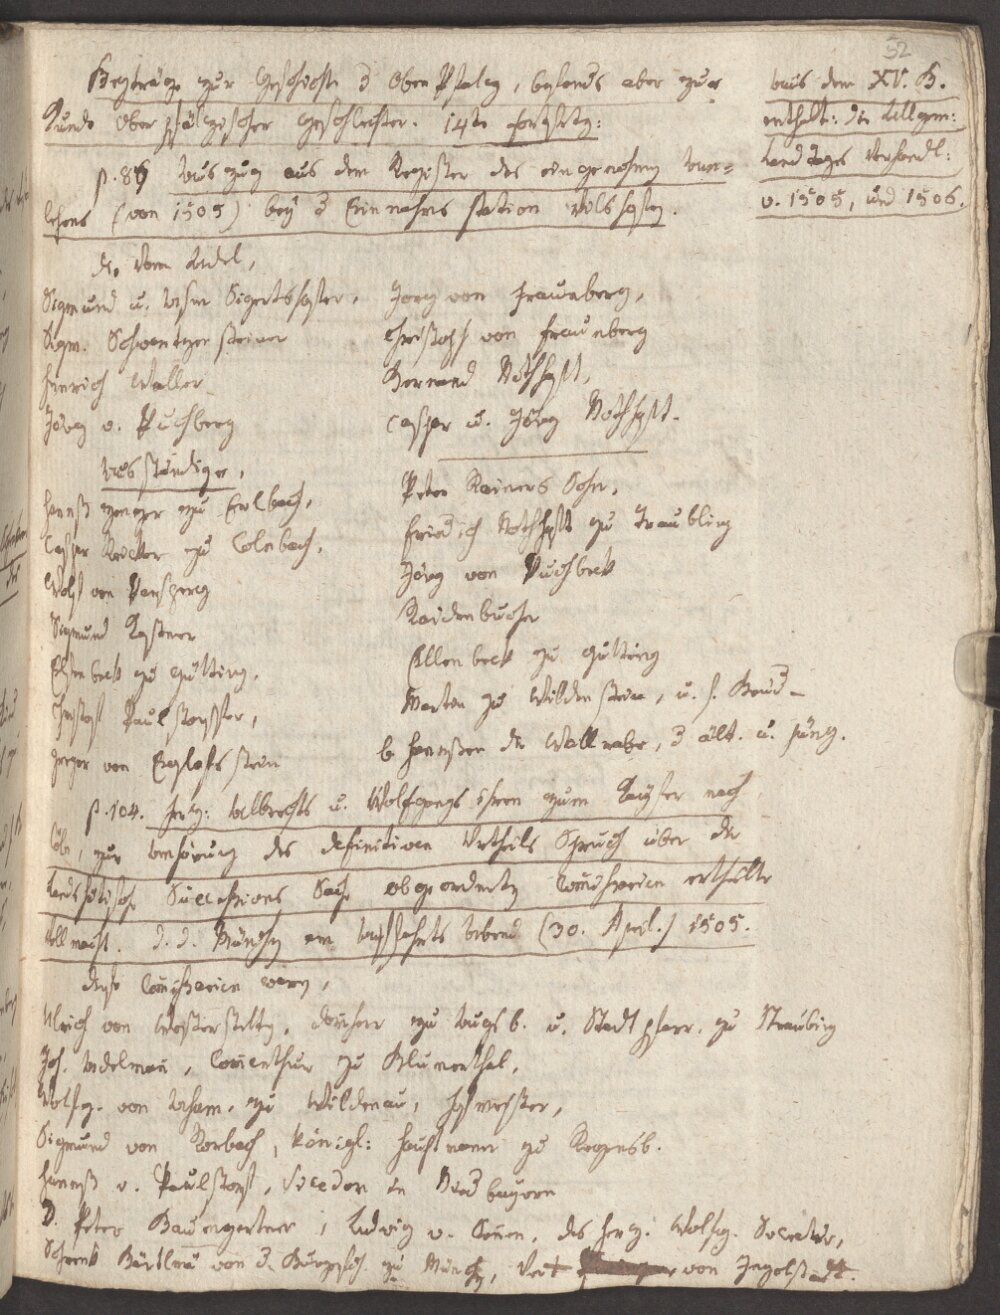 52
Beyträge zur Geschichte d Oben Pfalz, besonds aber zur
Kunde Oberpfälzischer Geschlechter. 14te Fortsetz:
aus dem XV. B.
enthält: die Allgem:
Landtages Verhandl:
v. 1505, und 1506.
p. 89 Auszug aus dem Register des eingenohmen Anlehens (von 1505) bey d Einnahms station Vilshofen.
a. Vom Adel,
Sigmund u. Achm Sigertshofer,
Sigm. Schwentzersteiner
Heinrich Waller
Jörg v. Puchberg
Jorg von Frauenberg,
Christoph von Fraunberg
Bernard Nothhafft,
Caspar u. Jörg Nothhafft.
Ausständige,
Hannß zenger zu Erlbach,
Caspar Recker zu Colnbach,
Wolf von Parsperg
Sigmund Castner
Elsenbeck zu Gütting,
Christoph Paulstorffer,
Jorg von Eglofsstein
Peter Rainers Sohn,
Friedrich Nothhafft zu Traubling
Jörg von Puchbeck
Raidenbucher
Ellenbeck zu Gütting
Marten zu Wildenstein, u. s. Brud-
b Hannßen die Wallrabe, d ält. u. jüng.
p. 104. Herz: Albrechts u. Wolfgangs ihren zum Kayser nach
Cöln, zur Anhörung des definitiven Urtheils Spruch über die
Landshütische Successions Sache abgeordneten Comißarien ertheilte
Vollmacht. d. d. München am Auffahrts Abend (30. April.) 1505.
diese Comißarien waren,
Ulrich von Westerstetten, domherr zu Augsb. u. Stadtpfarr. zu Straubing
Joh. Adelman, Comenthur zu Blumenthal,
Wolfg. von Aham, zu Wildenau, Hofmeister,
Sigmund von Rorbach, königl: Hauptmann zu Regensb.
Hannß v. Paulstorf, Vicedom in Niedbayern
D. Peter Baumgartner, Ludwig v. Senen, des Herz. Wolfg. Secretär,
Schrenk Bärtlmä von d. Burgersch. zu Münch, Veit von Ingolstadt.